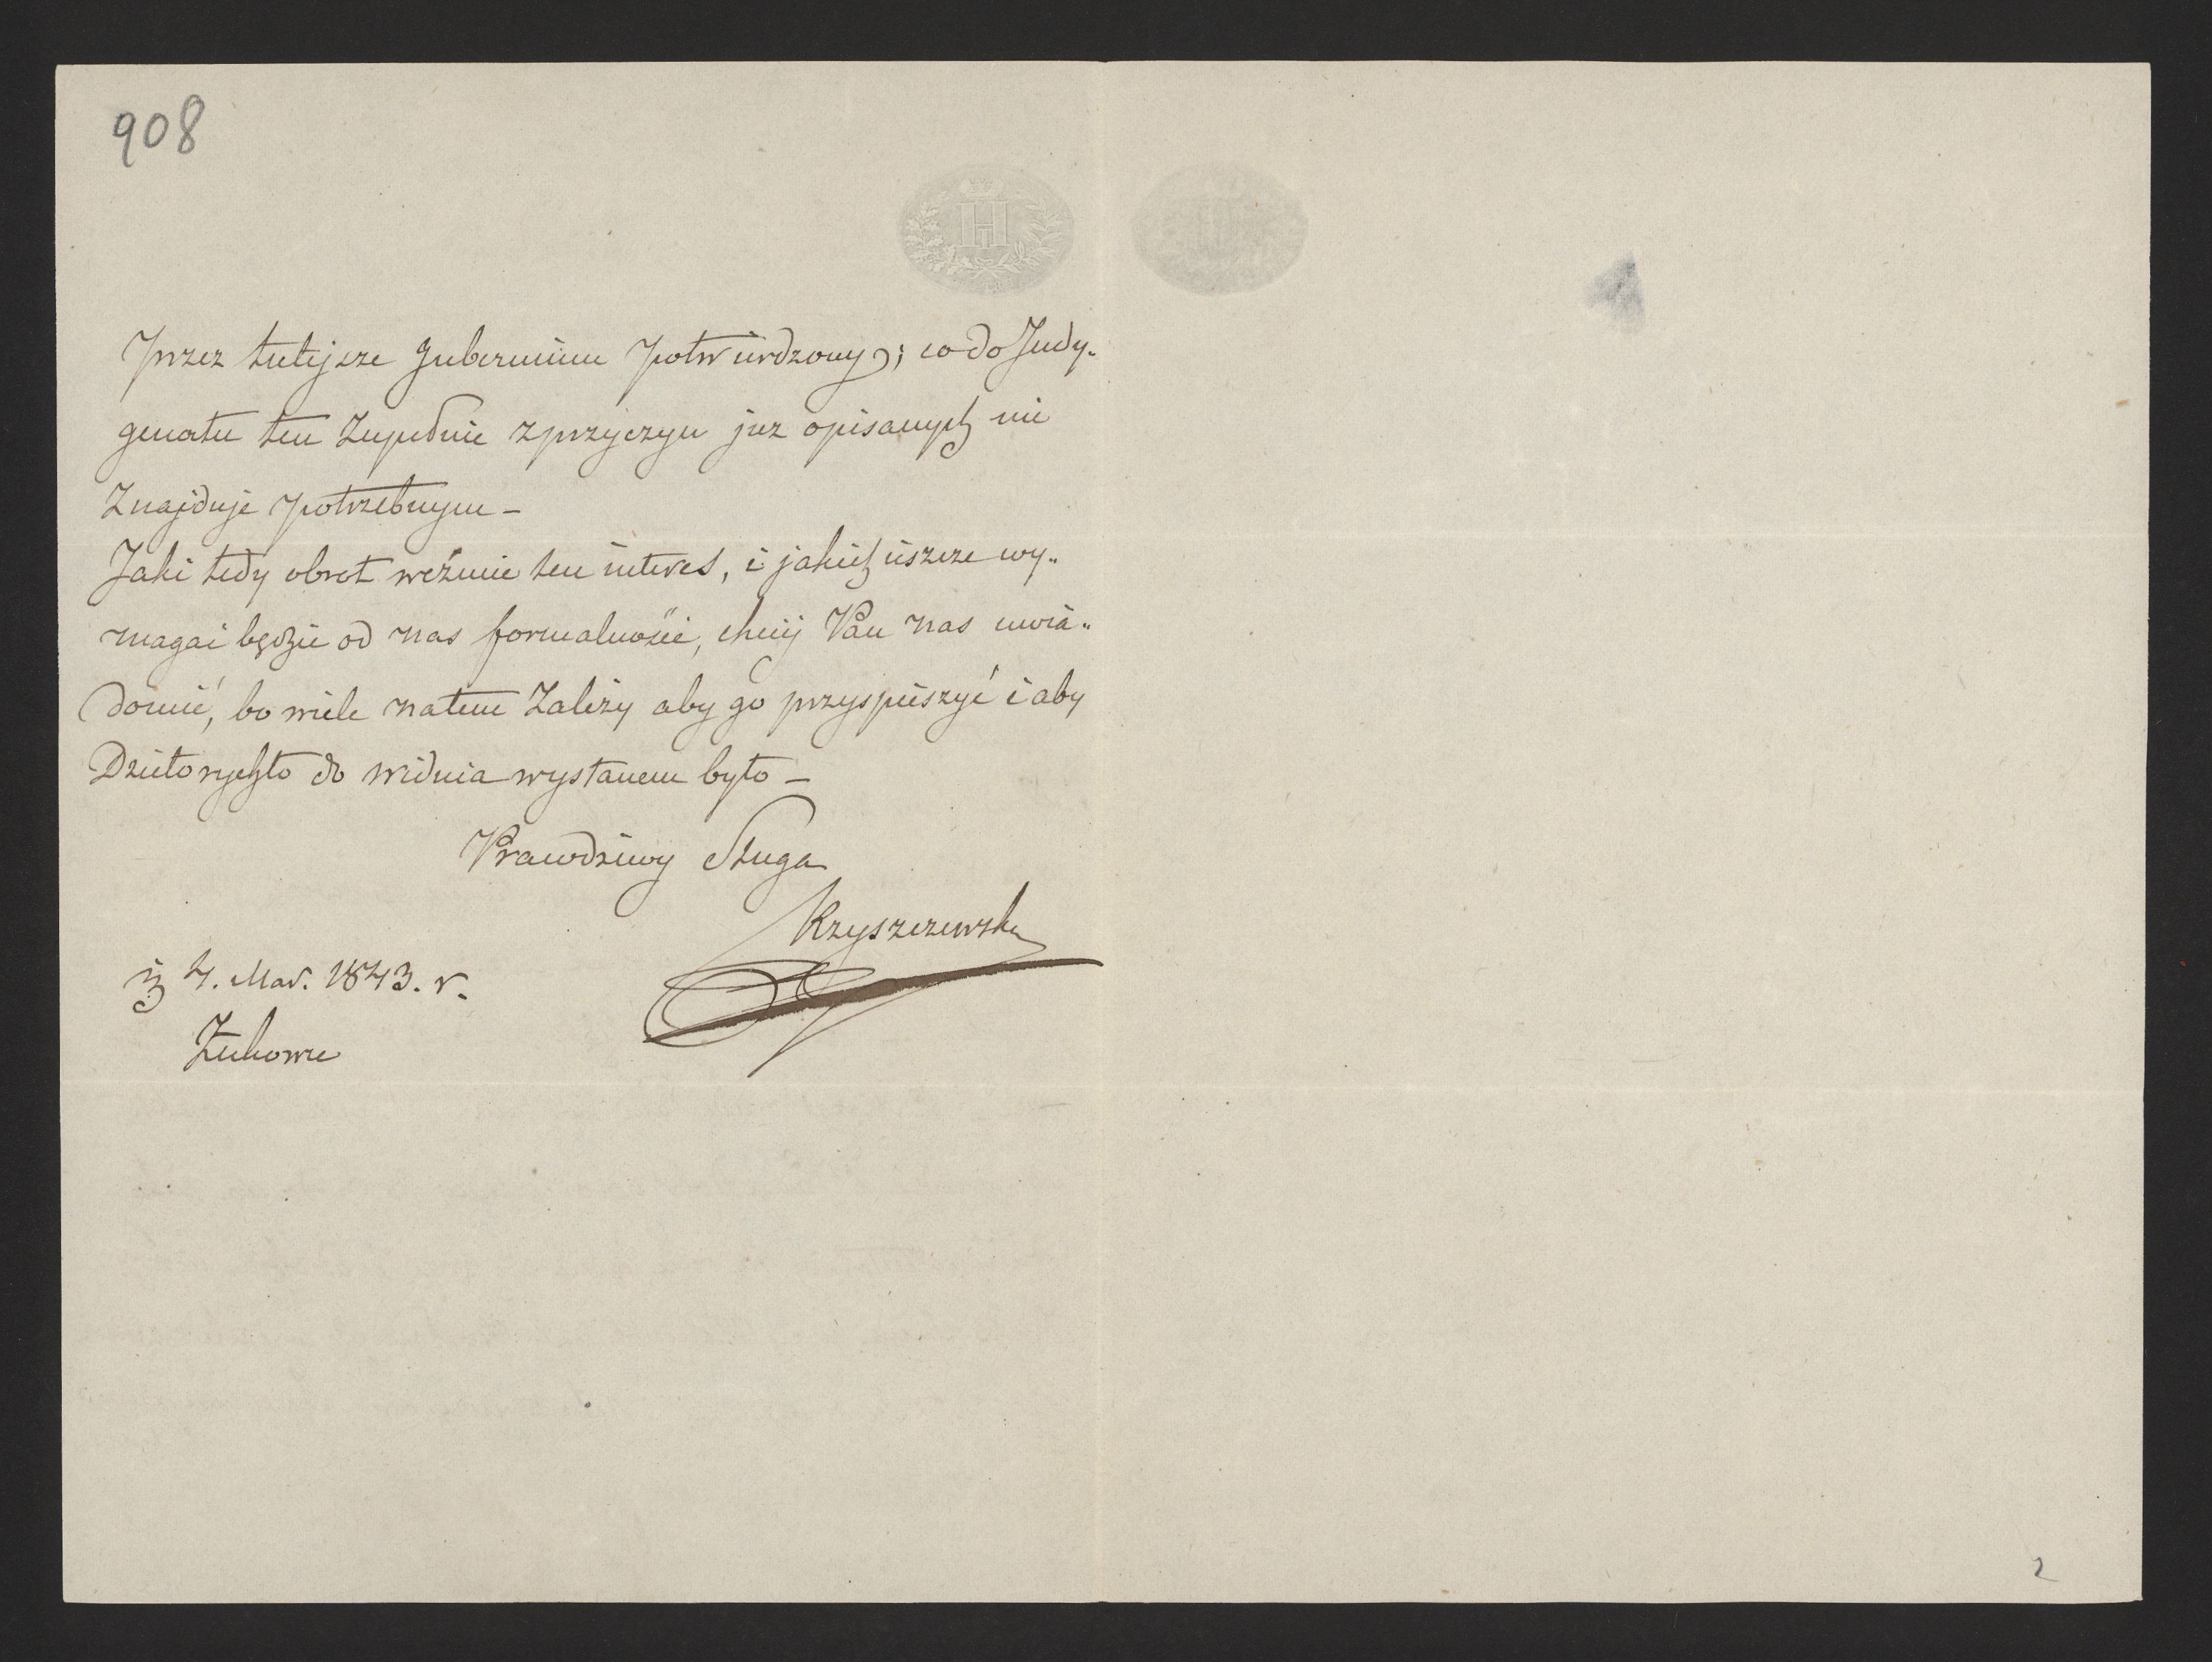 908
H
przez tutejsze Gubernium potwierdzony; co do Indy-
genatu ten zupełnie z przyczyn juz opisanych nie
znajduje potrzebnym –
Jaki tedy obrot weźmie ten interes, i jakich jeszcze wy-
magać będzie od nas formalności, chciej Pan nas uwia-
domić, bo wiele natem zależy aby go przyspieszyć i aby
Dzieło rychło do Widnia wysłanem było –
Prawdziwy Sługa
Krzyszczewski
4. Mar. 1843. r.
2